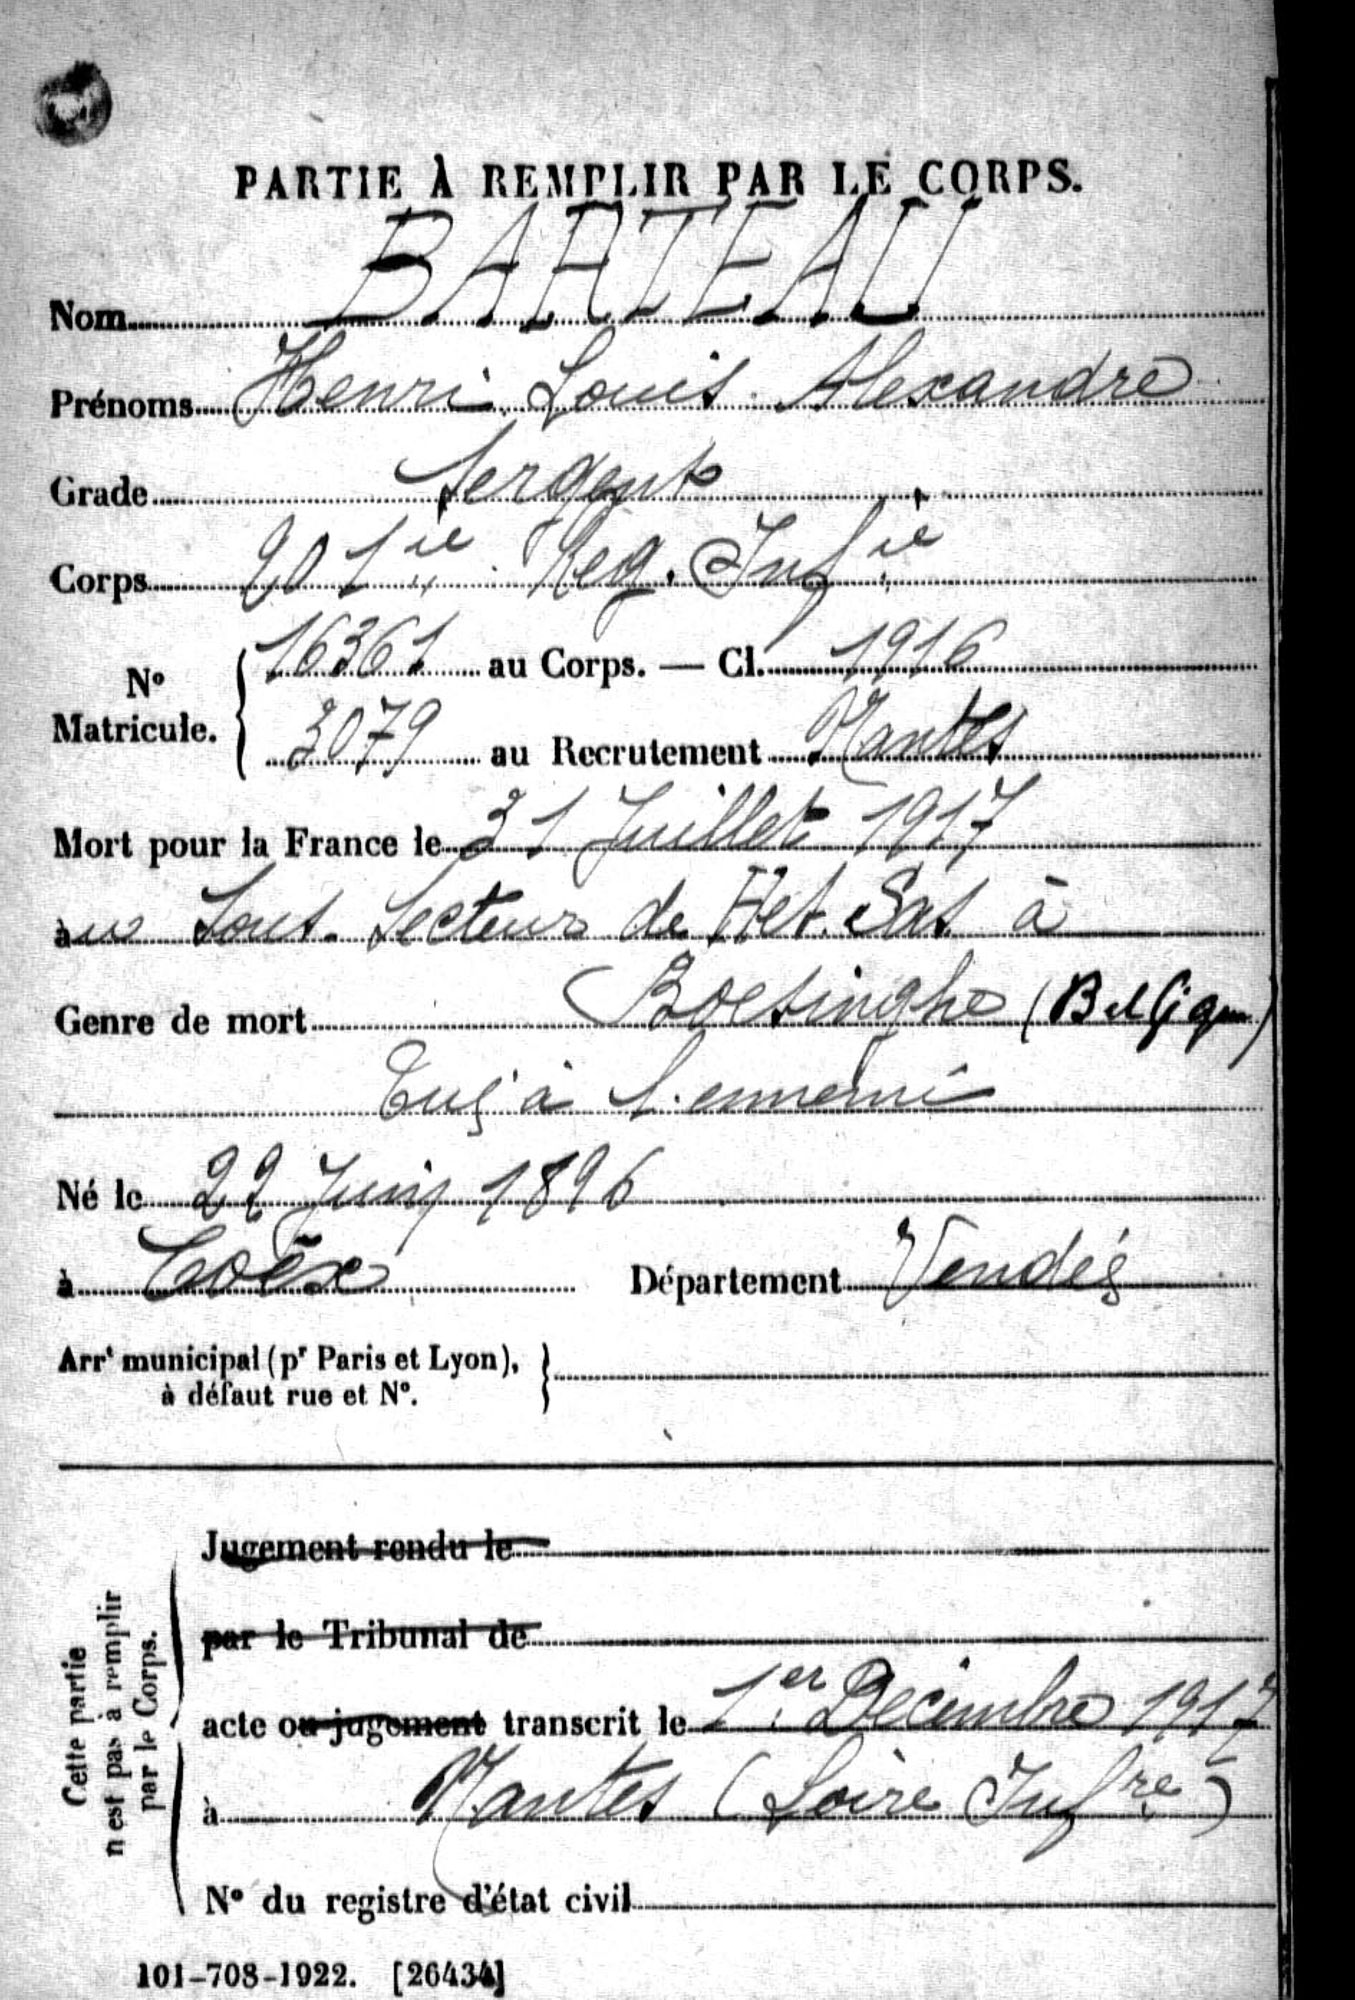 PARTIE À REMPLIR PAR LE CORPS.
Nom BARTEAU
Prénoms Henri Louis Alexandre
Grade Sergent
Corps 201ie Reg. Infie
No Matricule. { 16361 au Corps. — Cl. 1916
3079 au Recrutement Nantes
Mort pour la France le 31 Juillet 1917
au Sous. Secteur de Het. Sas à
Genre de mort Boesinghe (Belgique)
Tué à l'ennemi
Né le 22 Juin 1896
à Coëx Département Vendée
Arrt municipal (pr Paris et Lyon), }
à défaut rue et No.
Cette partie
n'est pas à remplir
par le Corps.
Jugement rendu le
par le Tribunal de
acte ou jugement transcrit le 1er Décembre 1917
à Nantes (Loire Infre)
No du registre d'état civil
101-708-1922. [26434]